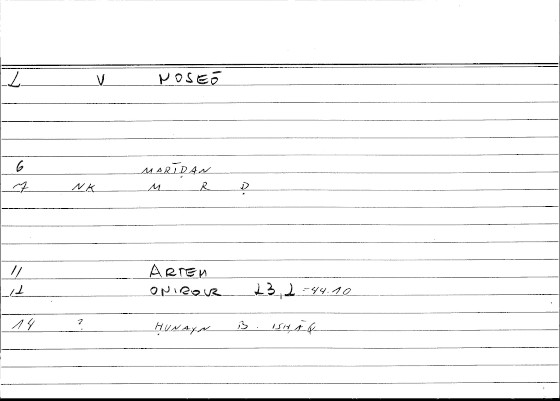 1 V NOSEŌ
6 MARĪḌAN
7 NK M R Ḍ
11 ARTEM
12 ONIROCR 23,2 = 44.10
14 ? ḤUNAYN B. ISḤĀQ